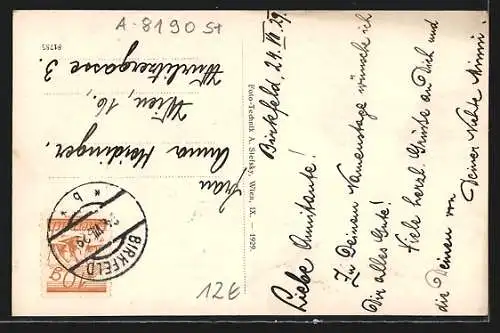 A-8190 St
Birkfeld, 24. VII. 29.
Liebe Annitante!
Zu Deinem Namenstage wünsche ich
Dir alles Gute!
Viele herzl. Grüße an Dich und
die Deinen von Deiner Nichte Minni.
Foto-Technik A. Stefsky, Wien, IX. — 1929.
Frau
Anna Heidinger.
Wien, 16.,
Wurlitzergasse 3.
91785
BIRKFELD
* b *
12€